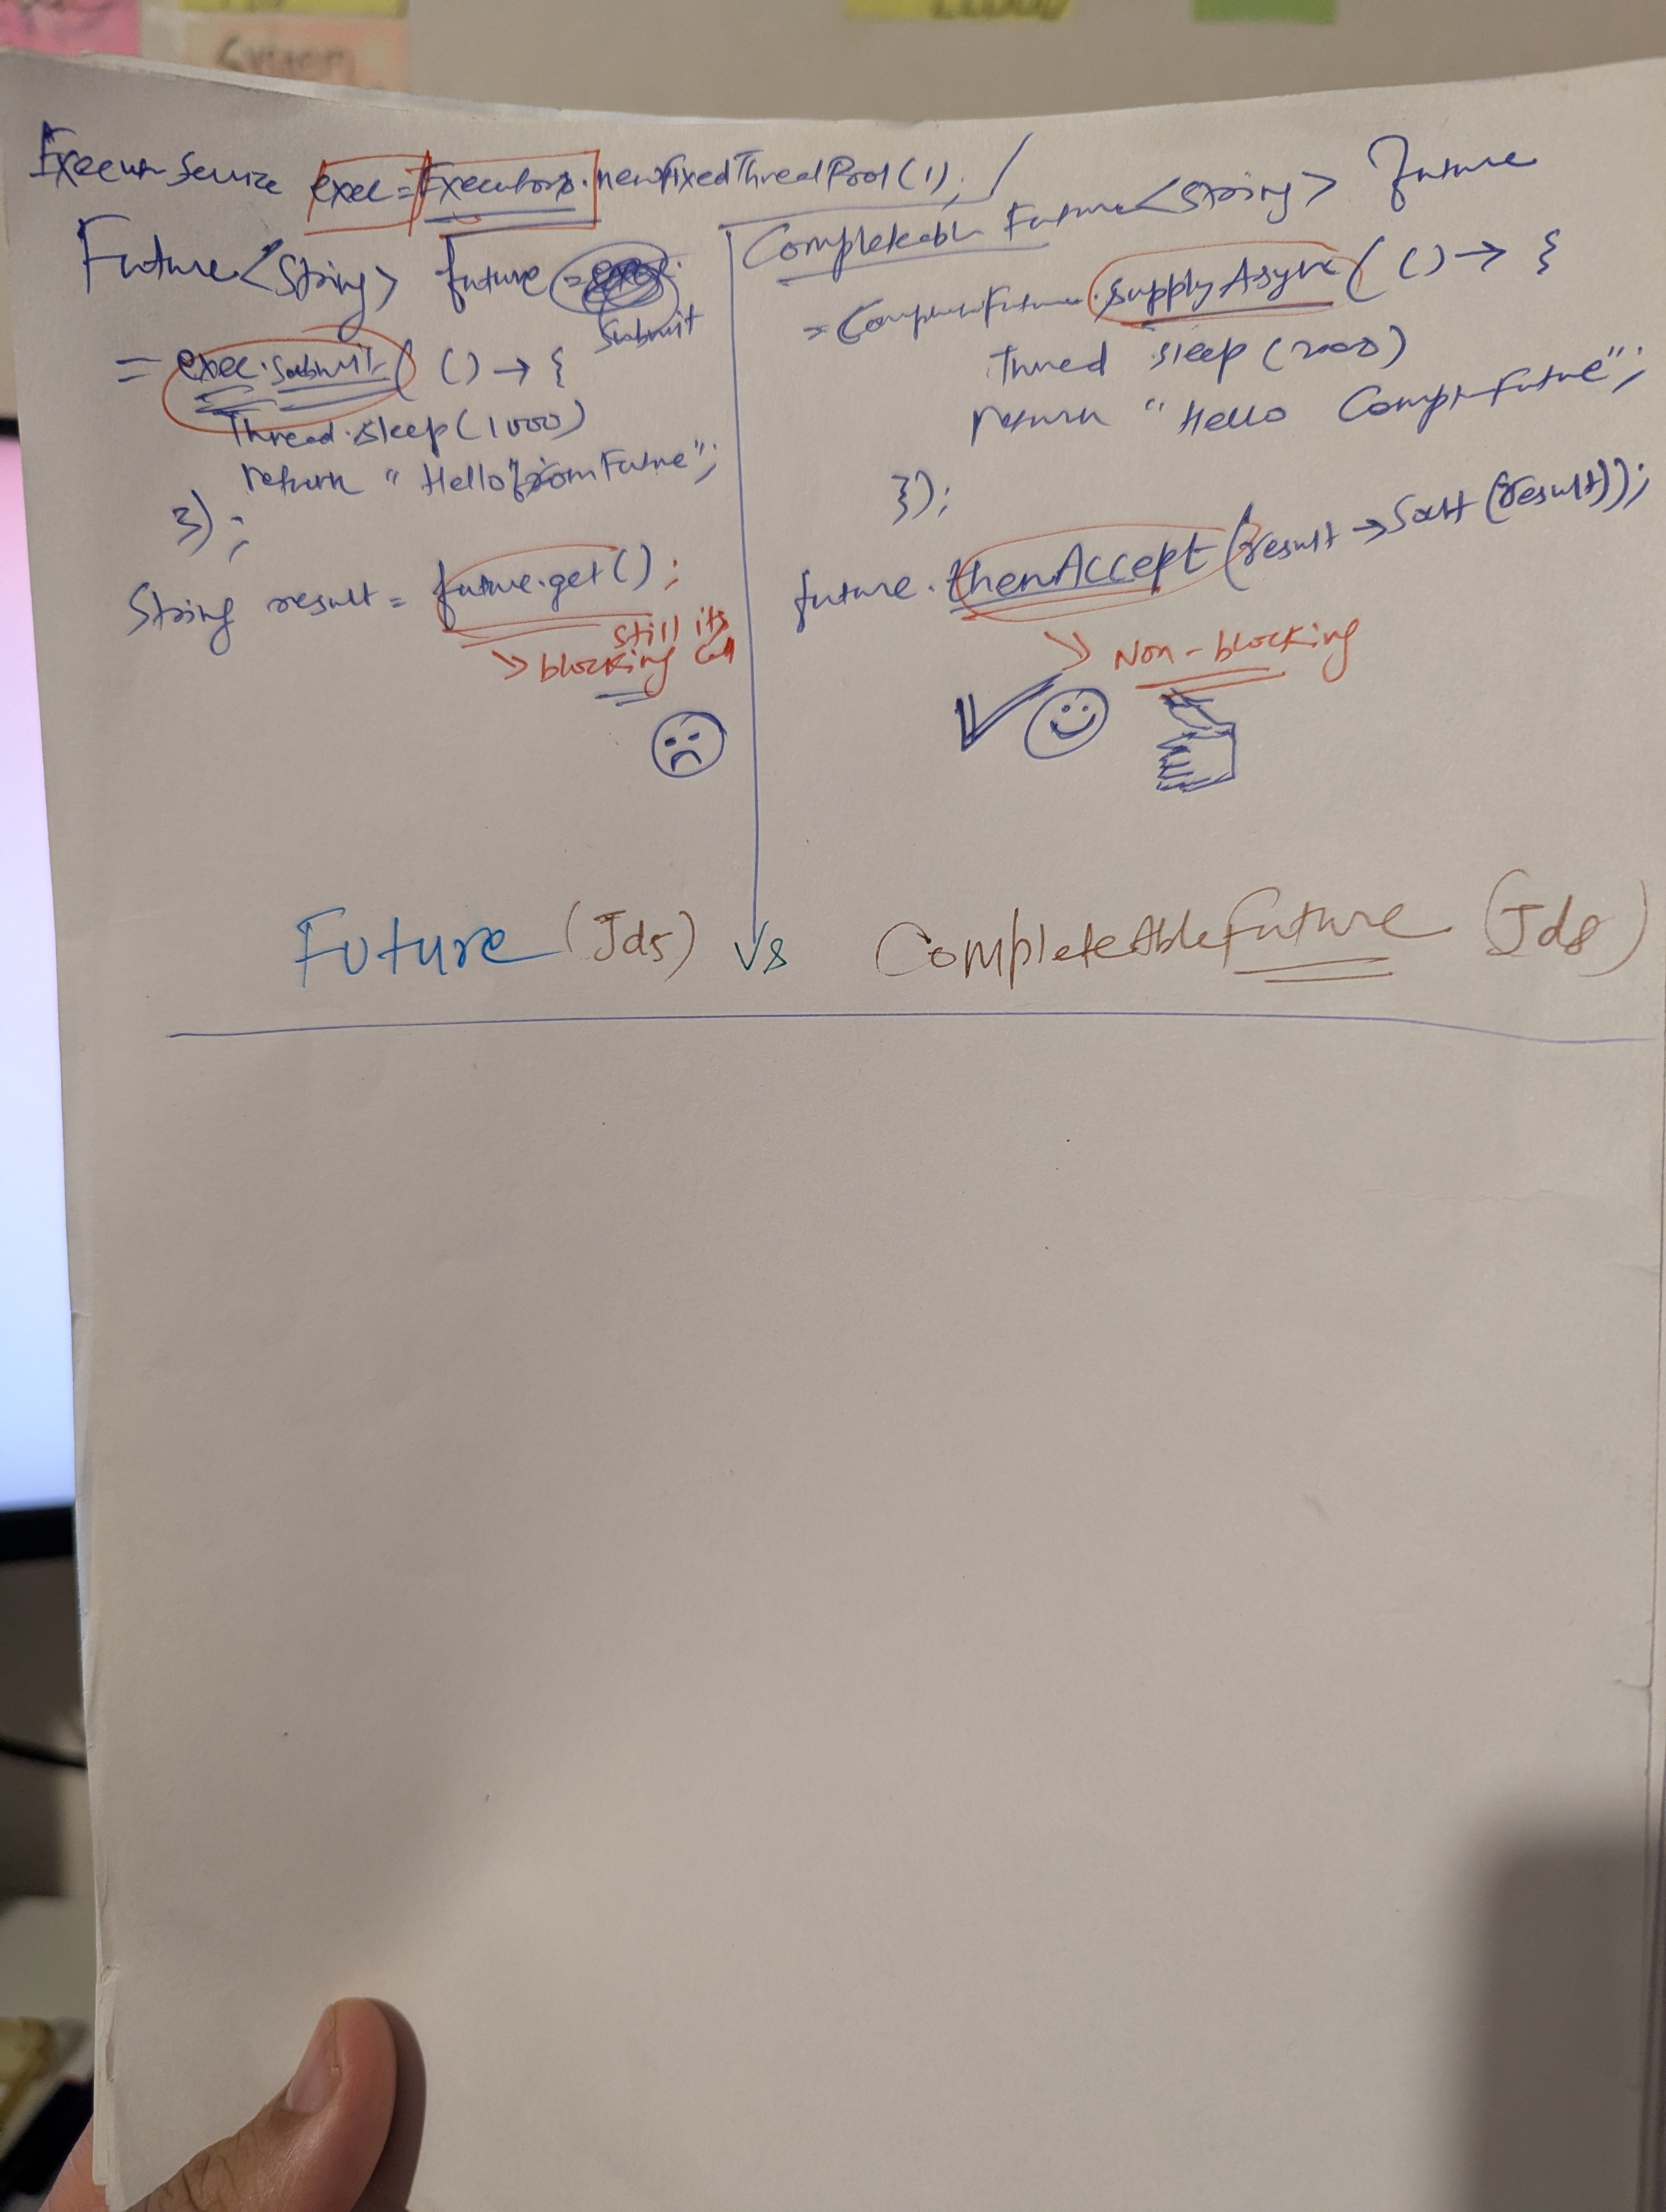 System
Executr Service exec = Executors.newFixedThreadPool(1);
Future<String> future =
submit
= exec.submit( () → {
Thread.sleep(1000)
return "Hello from Future";
});
String result = future.get();
still its
blocking call
Completeabl Future<String> future
= CompleteFuture.supplyAsync( () → {
Thread sleep (2000)
return "Hello Compl-future";
});
future.thenAccept(result → Sout(result));
Non-blocking
Future (Jd5) Vs CompleteAbleFuture (Jd8)